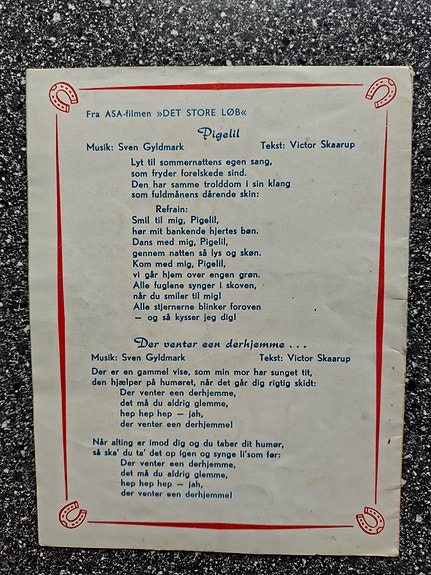 Fra ASA-filmen »DET STORE LØB«
Pigelil
Musik: Sven Gyldmark Tekst: Victor Skaarup
Lyt til sommernattens egen sang,
som fryder forelskede sind.
Den har samme trolddom i sin klang
som fuldmånens dårende skin:
Refrain:
Smil til mig, Pigelil,
hør mit bankende hjertes bøn.
Dans med mig, Pigelil,
gennem natten så lys og skøn.
Kom med mig, Pigelil,
vi går hjem over engen grøn.
Alle fuglene synger i skoven,
når du smiler til mig!
Alle stjernerne blinker foroven
— og så kysser jeg dig!
Der venter een derhjemme ...
Musik: Sven Gyldmark Tekst: Victor Skaarup
Der er en gammel vise, som min mor har sunget tit,
den hjælper på humøret, når det går dig rigtig skidt:
Der venter een derhjemme,
det må du aldrig glemme,
hep hep hep — jah,
der venter een derhjemme!
Når alting er imod dig og du taber dit humør,
så ska' du ta' det op igen og synge li'som før:
Der venter een derhjemme,
det må du aldrig glemme,
hep hep hep — jah,
der venter een derhjemme!